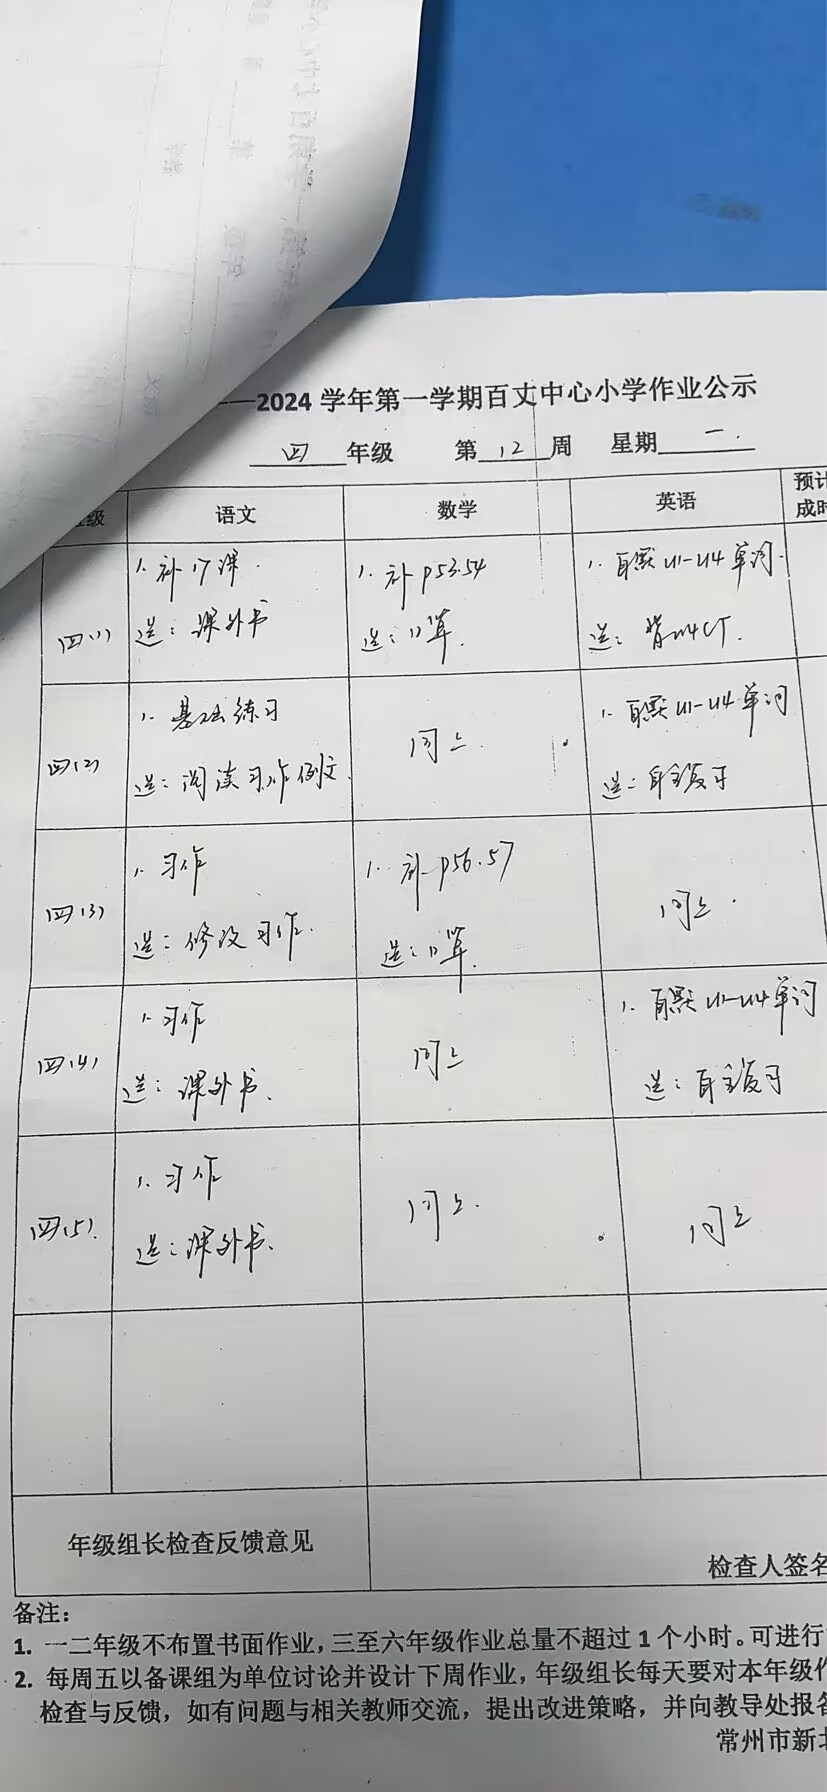 ——2024 学年第一学期百丈中心小学作业公示
四 年级 第 12 周 星期 一.
级 语文 数学 英语 预计
成时
四(1)
1. 补17课.
选: 课外书
1. 补P53.54
选: 口算.
1. 自默U1-U4单词.
选: 背U4CT.
四(2)
1. 基础练习
选: 阅读习作例文.
同上.
1. 自默U1-U4单词
选: 自主复习
四(3)
1. 习作
选: 修改习作.
1. 补P56.57
选: 口算.
同上.
四(4)
1. 习作
选: 课外书.
同上
1. 自默U1-U4单词
选: 自主复习
四(5).
1. 习作
选: 课外书.
同上.
同上
年级组长检查反馈意见
检查人签名
备注:
1. 一二年级不布置书面作业,三至六年级作业总量不超过 1 个小时。可进行
2. 每周五以备课组为单位讨论并设计下周作业,年级组长每天要对本年级作
检查与反馈,如有问题与相关教师交流,提出改进策略,并向教导处报备
常州市新北